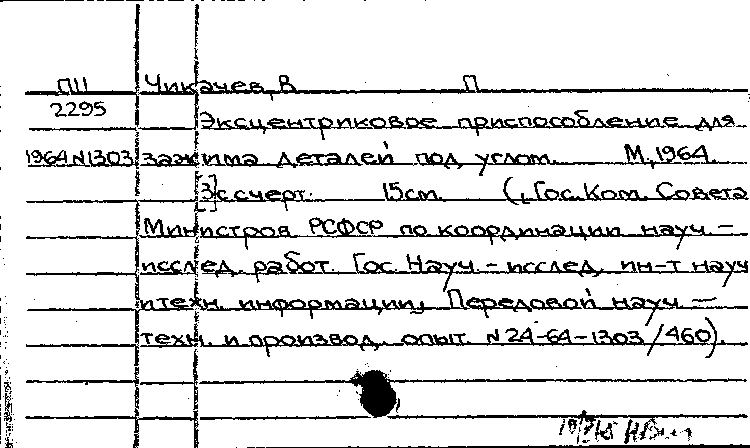 ПШ Чикачев, В П
2295
Эксцентриковое приспособление для
1964 N1303 зажима деталей под углом. М, 1964.
[3]с счерт. 15см. (, Гос. Ком. Совета
Министров РСФСР по координации науч –
исслед. работ. Гос. Науч – исслед. ин-т науч
итехн. информации, Передовой науч –
техн. и производ. опыт. N 24-64-1303/460).